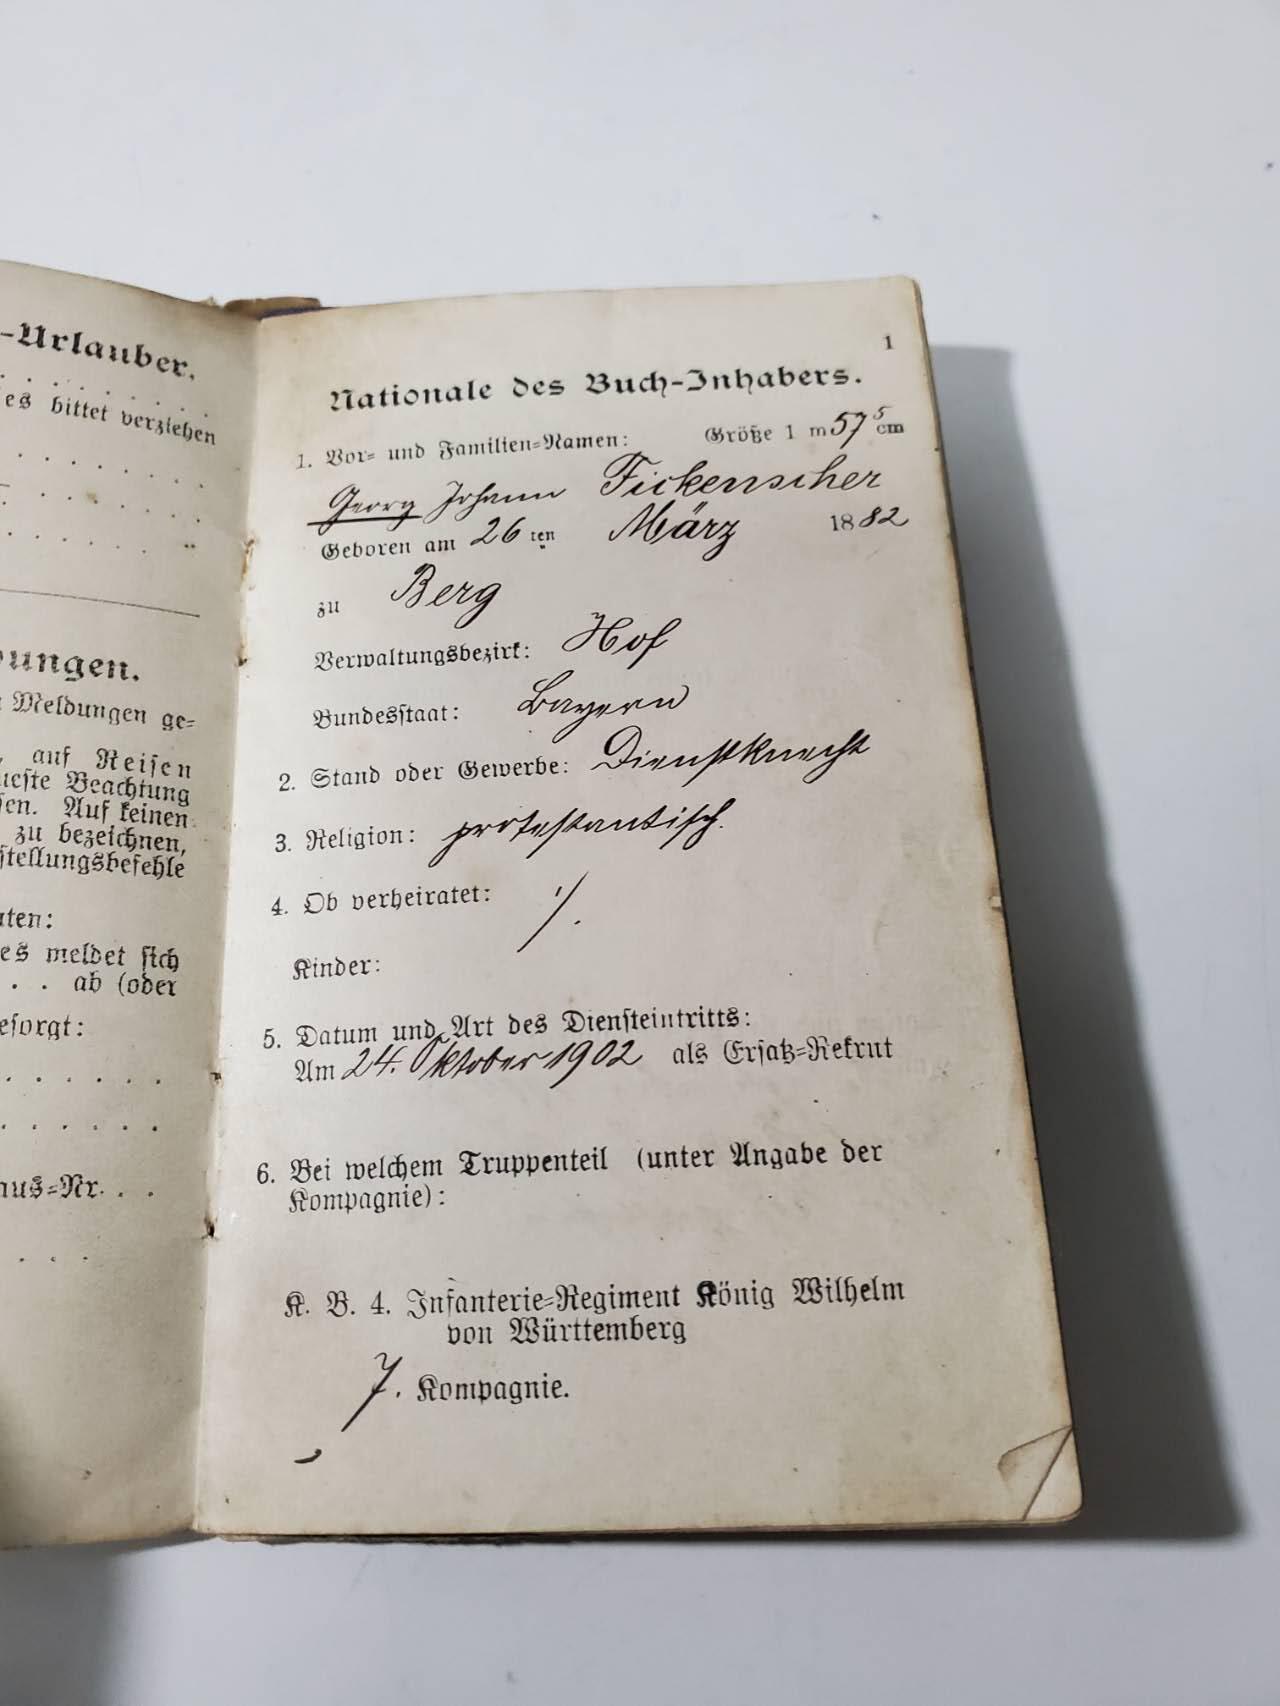 -Urlauber.
es bittet verziehen
ungen.
Meldungen ge-
auf Reisen
ueste Beachtung
sen. Auf keinen
zu bezeichnen,
stellungsbefehle
ten:
es meldet sich
. . ab (oder
esorgt:
aus-Nr. . .
1
Nationale des Buch-Inhabers.
1. Vor- und Familien-Namen: Größe 1 m 57 5 cm
Georg Johann Fickenscher
Geboren am 26 ten März 1882
zu Berg
Verwaltungsbezirk: Hof
Bundesstaat: Bayern
2. Stand oder Gewerbe: Dienstknecht
3. Religion: protestantisch.
4. Ob verheiratet: ·/.
Kinder:
5. Datum und Art des Diensteintritts:
Am 24. Oktober 1902 als Ersatz-Rekrut
6. Bei welchem Truppenteil (unter Angabe der
Kompagnie):
K. B. 4. Infanterie-Regiment König Wilhelm
von Württemberg
7. Kompagnie.